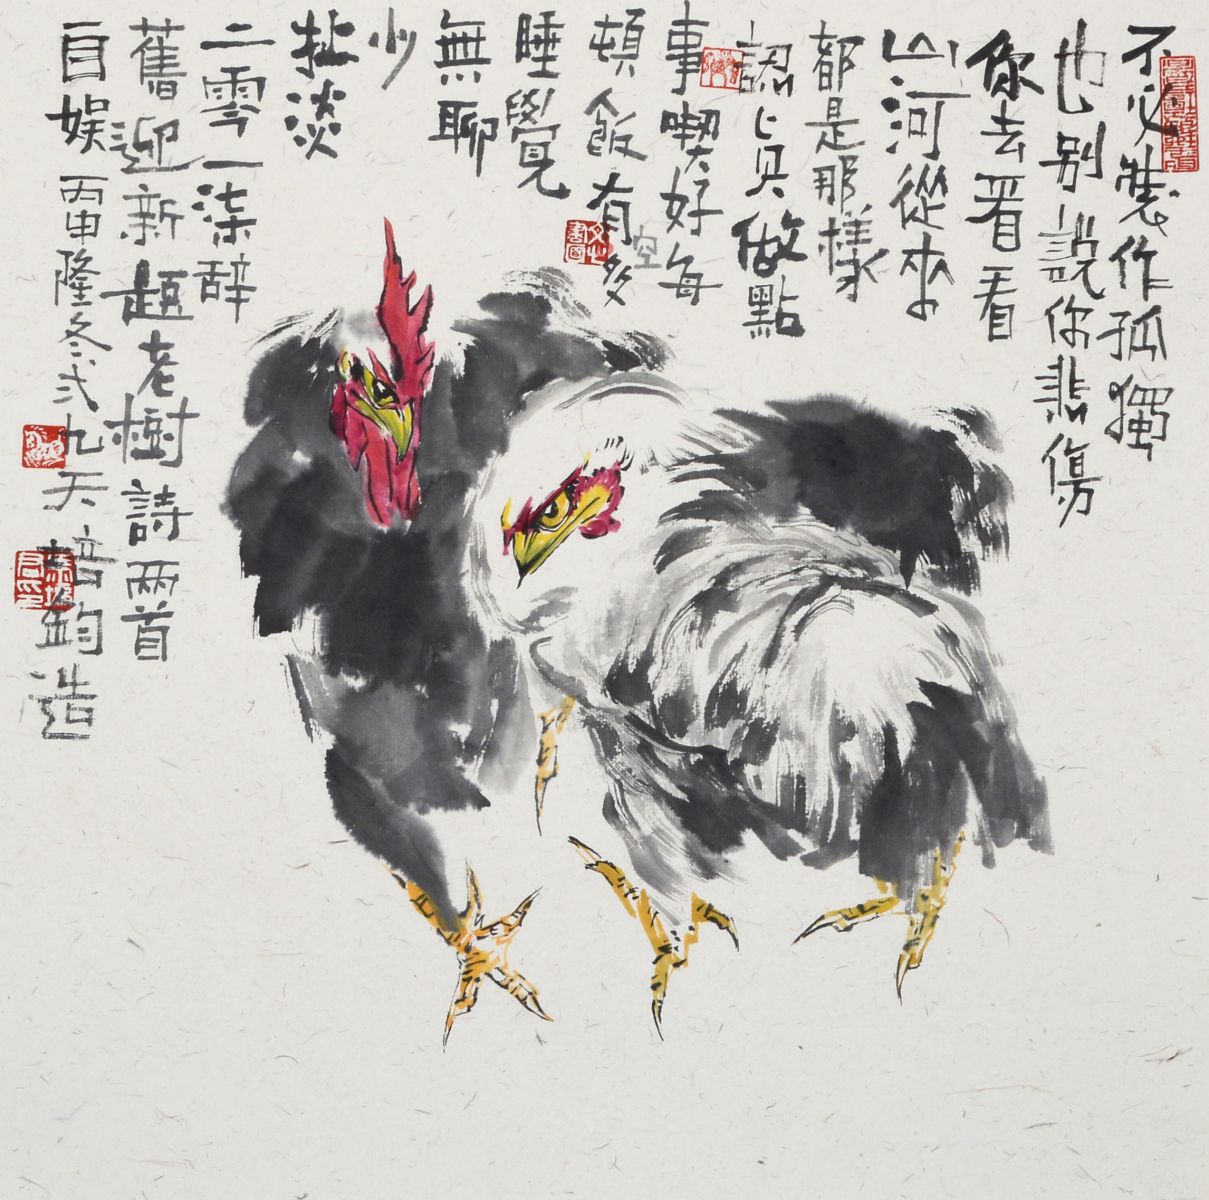 不必製作孤獨
也別說你悲傷
你去看看
山河從來
都是那樣
認真做點
事喫好每
頓飯有空多
睡覺
無聊
少
扯淡
二零一柒辭
舊迎新題老樹詩兩首
自娱丙申隆冬弍九天培鈞造